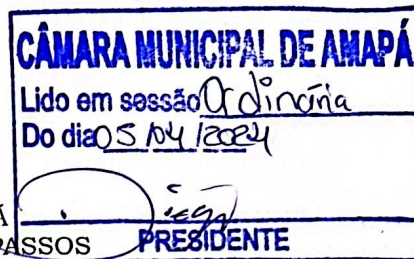 CÂMARA MUNICIPAL DE AMAPÁ
Lido em sessão Ordinária
Do dia 05/04/2024
Á
PASSOS
PRESIDENTE